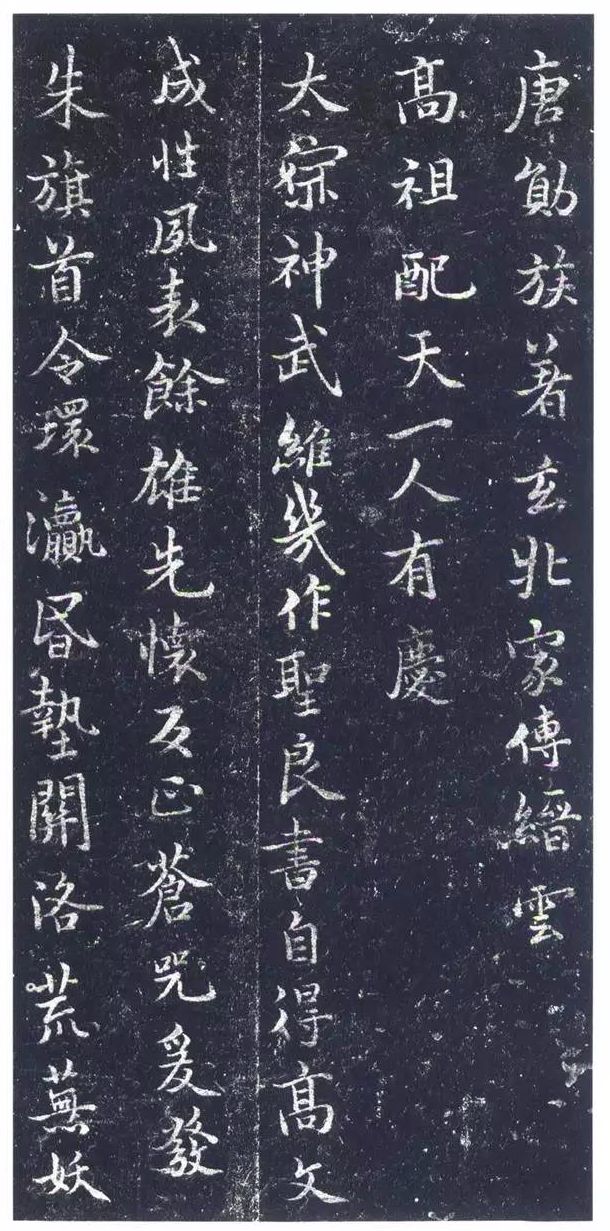 唐勛族著玄北家傳縉雲
高祖配天一人有慶
太宗神武維幾作聖良書自得高文
成性夙表餘雄先懷反正蒼兕爰發
朱旗首令環瀛昏墊關洛荒蕪妖